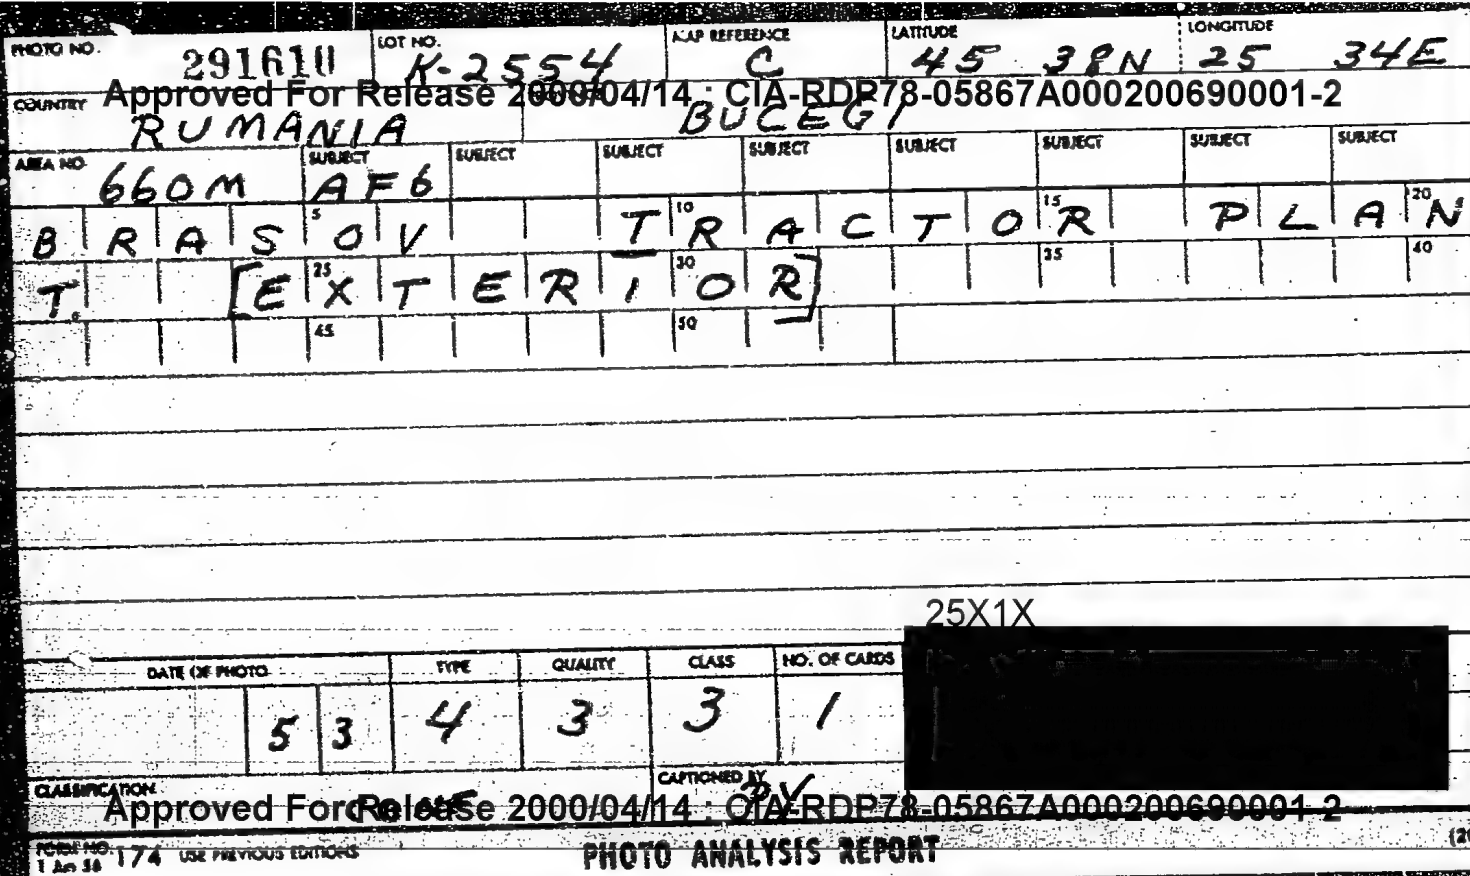 PHOTO NO. 291610 LOT NO. K-2554 MAP REFERENCE C LATITUDE 45 38N LONGITUDE 25 34E
Approved For Release 2000/04/14 : CIA-RDP78-05867A000200690001-2
COUNTRY RUMANIA BUCEGI
AREA NO. 660M SUBJECT AF6 SUBJECT SUBJECT SUBJECT SUBJECT SUBJECT SUBJECT SUBJECT
5 10 15 20
BRASOV TRACTOR PLAN
25 30 35 40
T. [EXTERIOR]
45 50
25X1X
DATE OF PHOTO TYPE QUALITY CLASS NO. OF CARDS
53 4 3 3 1
CLASSIFICATION CAPTIONED BY
Approved For Release 2000/04/14 : CIA-RDP78-05867A000200690001-2
FORM NO. 174 USE PREVIOUS EDITIONS PHOTO ANALYSIS REPORT
1 Apr 56